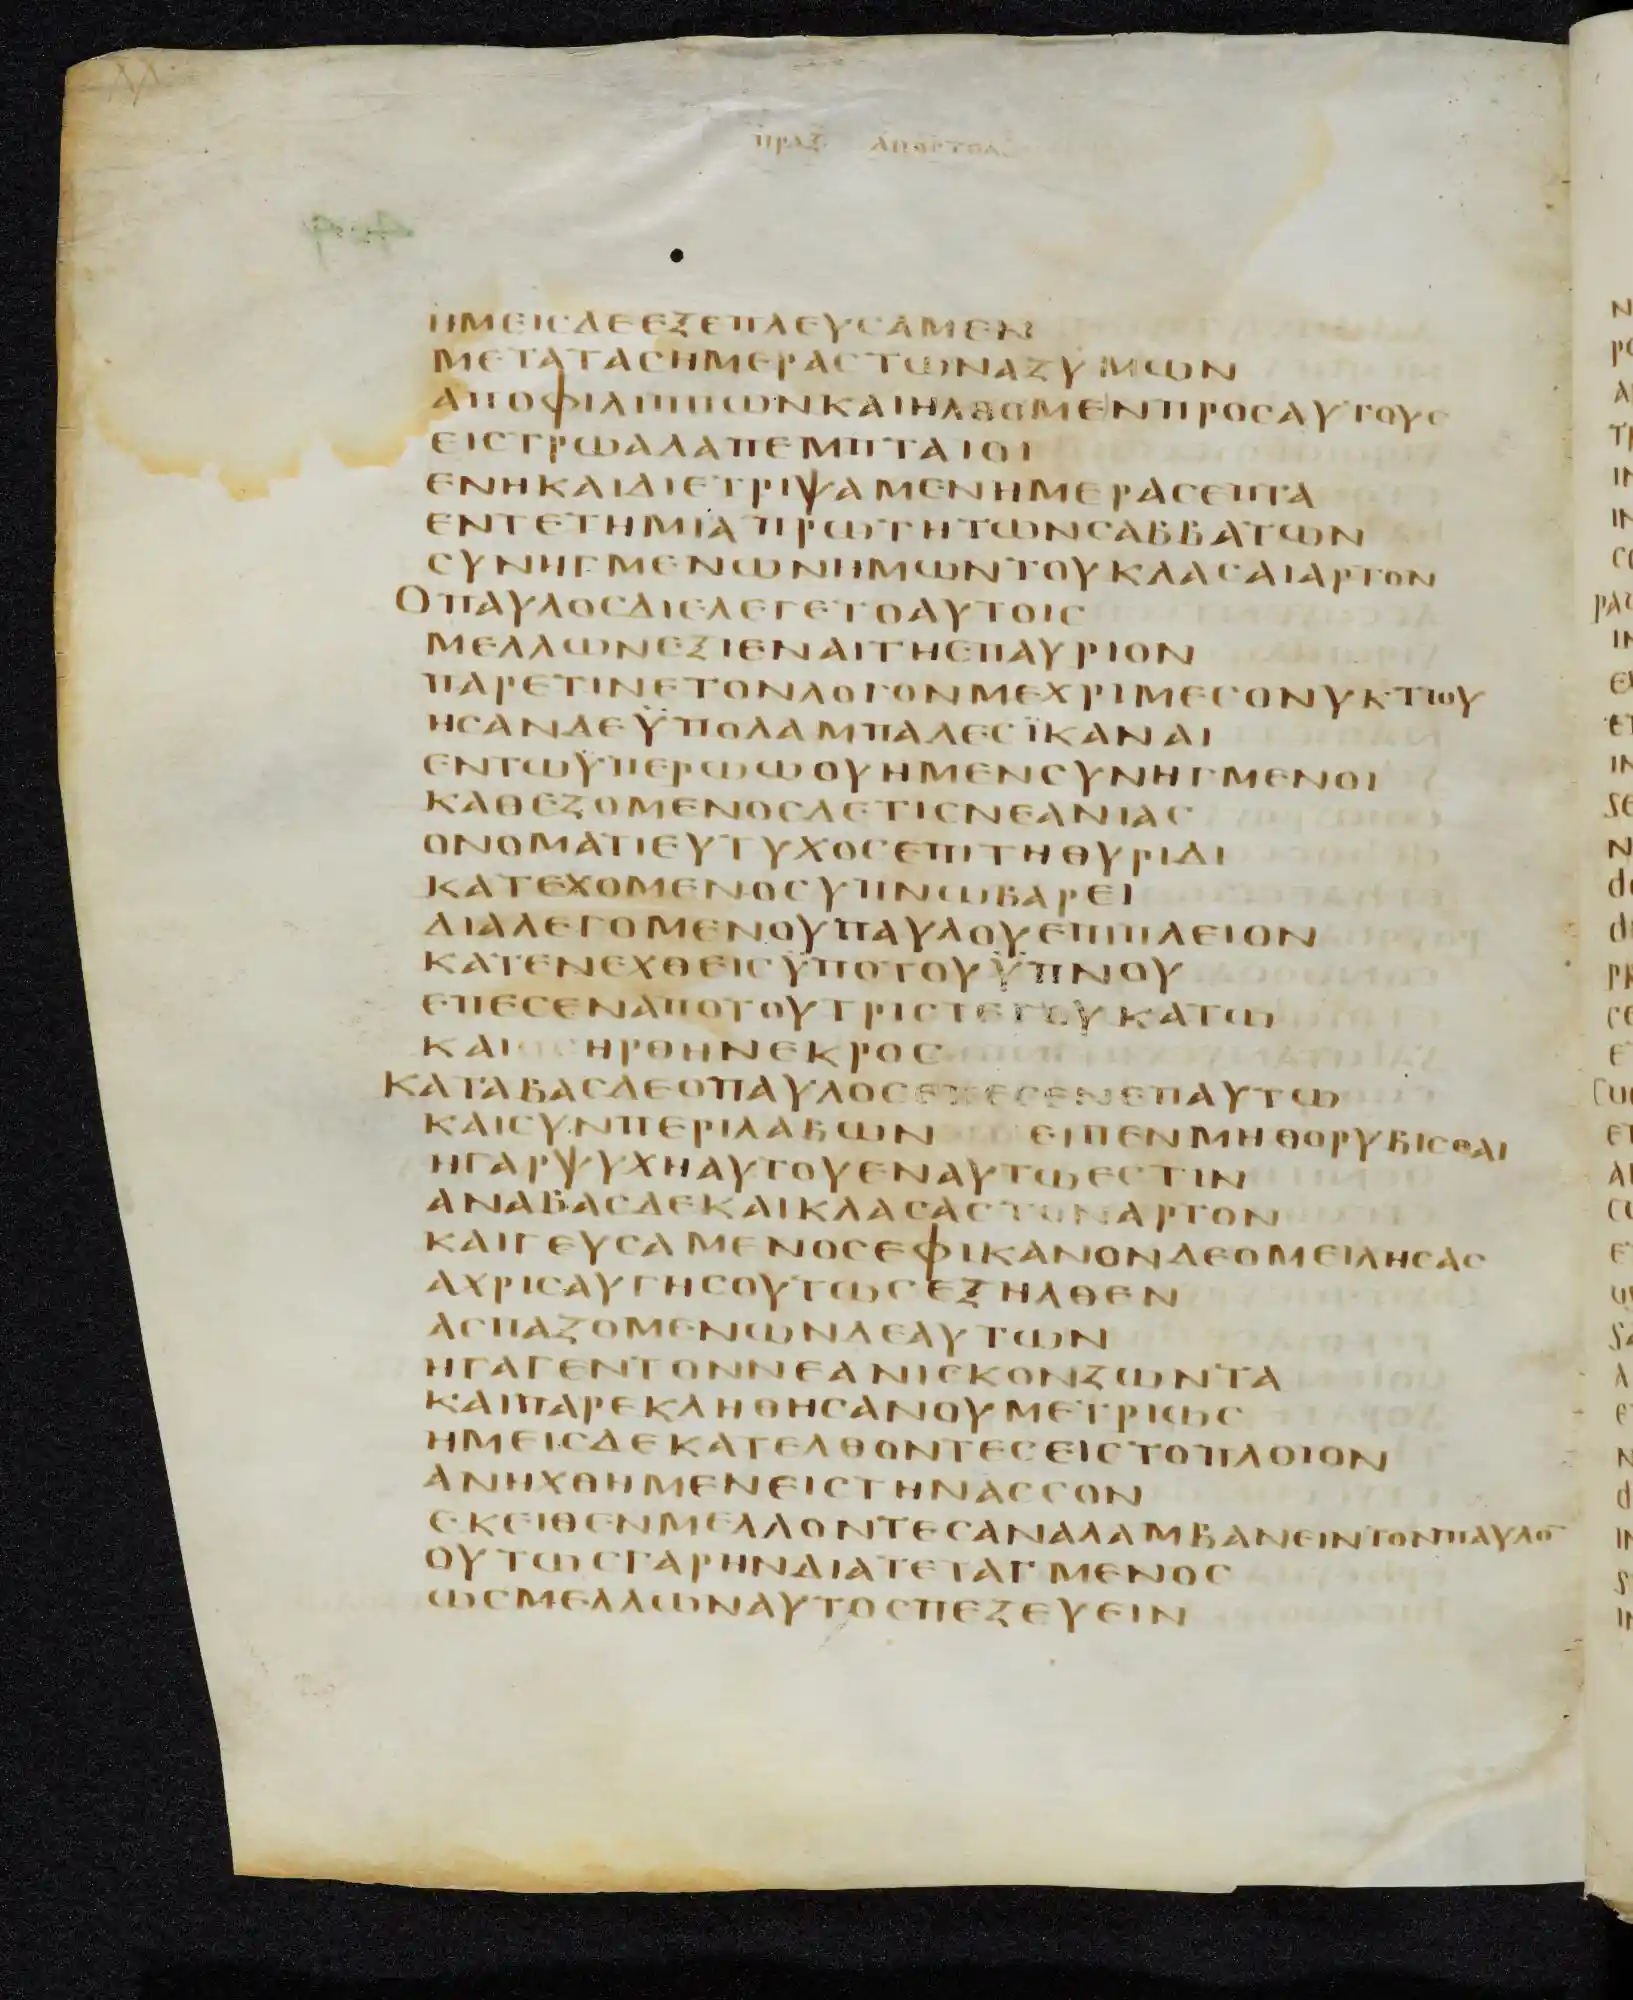 ΠΡΑΞ ΑΠΟΣΤΟΛ
ΗΜΕΙСΔΕΕΞΕΠΛΕΥСΑΜΕΝ
ΜΕΤΑΤΑСΗΜΕΡΑСΤΩΝΑΖΥΜΩΝ
ΑΠΟΦΙΛΙΠΠΩΝΚΑΙΗΛΘΟΜΕΝΠΡΟСΑΥΤΟΥС
ΕΙСΤΡΩΑΔΑΠΕΜΠΤΑΙΟΙ
ΕΝΗΚΑΙΔΙΕΤΡΙΨΑΜΕΝΗΜΕΡΑСΕΠΤΑ
ΕΝΤΕΤΗΜΙΑΠΡΩΤΗΤΩΝСΑΒΒΑΤΩΝ
СΥΝΗΓΜΕΝΩΝΗΜΩΝΤΟΥΚΛΑСΑΙΑΡΤΟΝ
ΟΠΑΥΛΟСΔΙΕΛΕΓΕΤΟΑΥΤΟΙС
ΜΕΛΛΩΝΕΞΙΕΝΑΙΤΗΕΠΑΥΡΙΟΝ
ΠΑΡΕΤΙΝΕΤΟΝΛΟΓΟΝΜΕΧΡΙΜΕСΟΝΥΚΤΙΟΥ
ΗСΑΝΔΕΫΠΟΛΑΜΠΑΔΕСΪΚΑΝΑΙ
ΕΝΤΩΫΠΕΡΩΩΟΥΗΜΕΝСΥΝΗΓΜΕΝΟΙ
ΚΑΘΕΖΟΜΕΝΟСΔΕΤΙСΝΕΑΝΙΑС
ΟΝΟΜΑΤΙΕΥΤΥΧΟСΕΠΙΤΗΘΥΡΙΔΙ
ΚΑΤΕΧΟΜΕΝΟСΥΠΝΩΒΑΡΕΙ
ΔΙΑΛΕΓΟΜΕΝΟΥΠΑΥΛΟΥΕΠΙΠΛΕΙΟΝ
ΚΑΤΕΝΕΧΘΕΙСΫΠΟΤΟΥΫΠΝΟΥ
ΕΠΕСΕΝΑΠΟΤΟΥΤΡΙСΤΕΓΟΥΚΑΤΩ
ΚΑΙ ΗΡΘΗΝΕΚΡΟС
ΚΑΤΑΒΑСΔΕΟΠΑΥΛΟСΕΠΕСΕΝΕΠΑΥΤΩ
ΚΑΙСΥΝΠΕΡΙΛΑΒΩΝ ΕΙΠΕΝΜΗΘΟΡΥΒΙСΘΑΙ
ΗΓΑΡΨΥΧΗΑΥΤΟΥΕΝΑΥΤΩΕСΤΙΝ
ΑΝΑΒΑСΔΕΚΑΙΚΛΑСΑСΤΟΝΑΡΤΟΝ
ΚΑΙΓΕΥСΑΜΕΝΟСΕΦΙΚΑΝΟΝΔΕΟΜΕΙΛΗСΑС
ΑΧΡΙСΑΥΓΗСΟΥΤΩСΕΞΗΛΘΕΝ
ΑСΠΑΖΟΜΕΝΩΝΔΕΑΥΤΩΝ
ΗΓΑΓΕΝΤΟΝΝΕΑΝΙСΚΟΝΖΩΝΤΑ
ΚΑΙΠΑΡΕΚΛΗΘΗСΑΝΟΥΜΕΤΡΙΩС
ΗΜΕΙСΔΕΚΑΤΕΛΘΟΝΤΕСΕΙСΤΟΠΛΟΙΟΝ
ΑΝΗΧΘΗΜΕΝΕΙСΤΗΝΑССΟΝ
ΕΚΕΙΘΕΝΜΕΛΛΟΝΤΕСΑΝΑΛΑΜΒΑΝΕΙΝΤΟΝΠΑΥΛΟ̅
ΟΥΤΩСΓΑΡΗΝΔΙΑΤΕΤΑΓΜΕΝΟС
ΩСΜΕΛΛΩΝΑΥΤΟСΠΕΖΕΥΕΙΝ